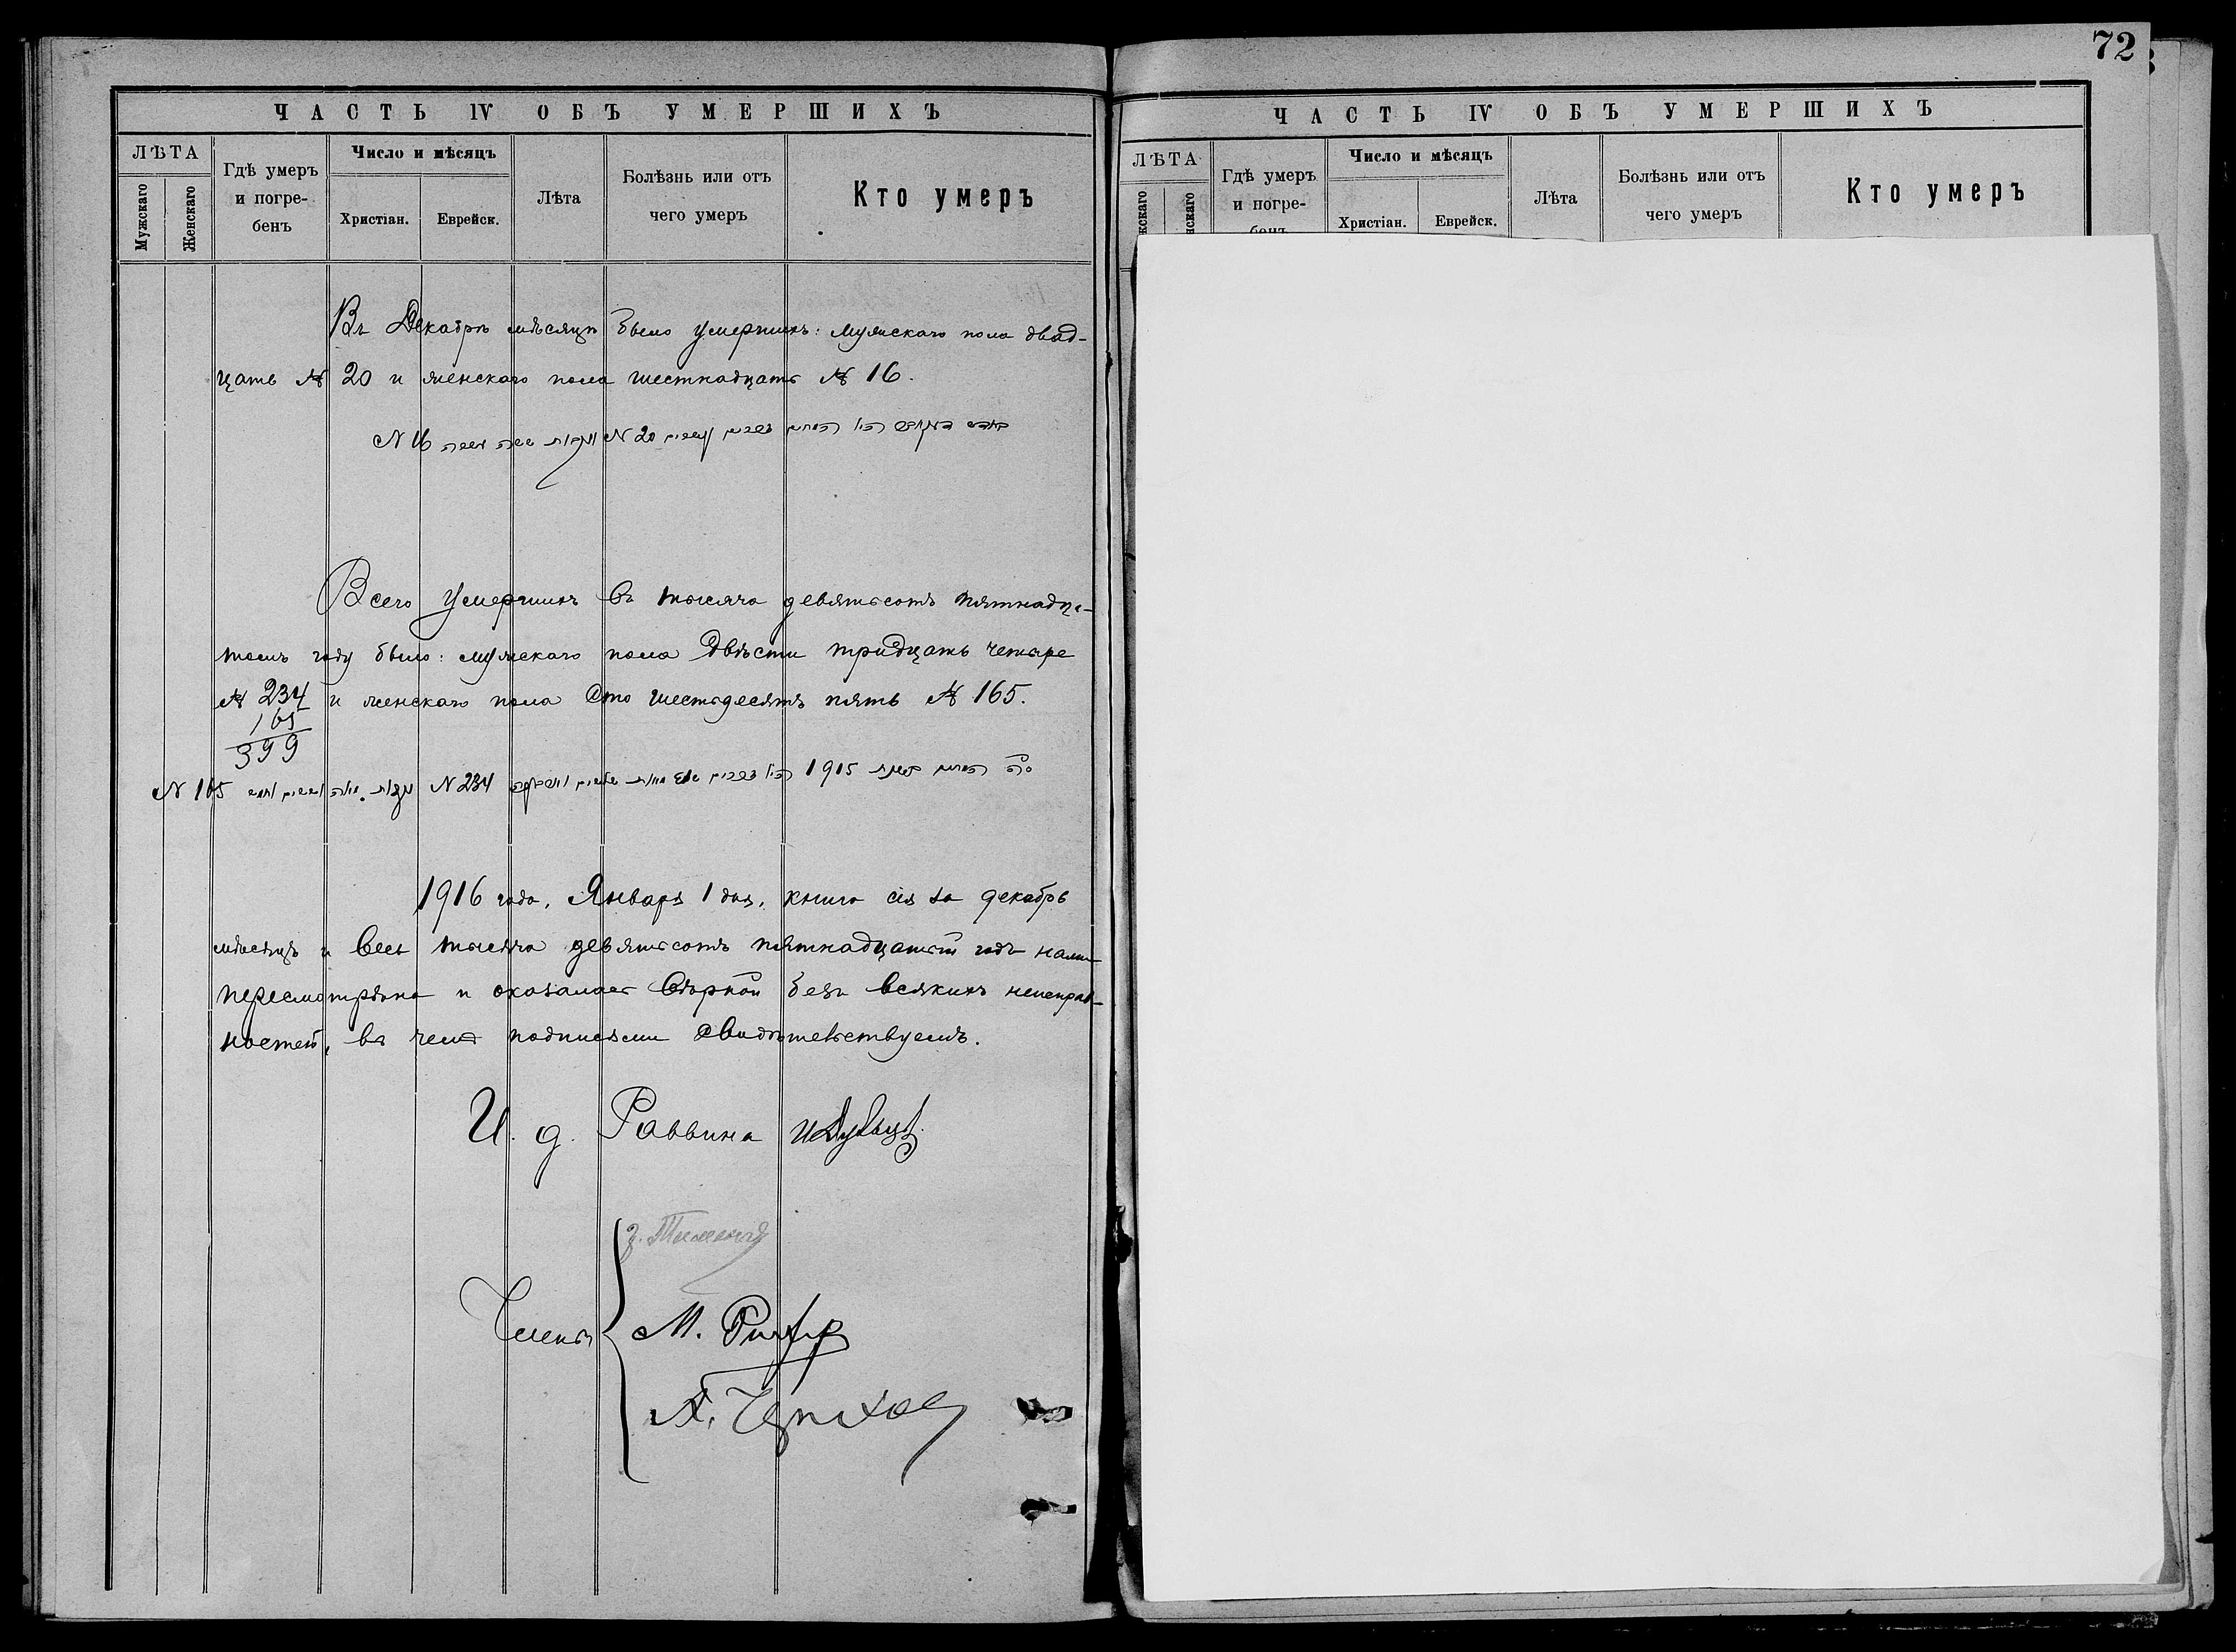 72
ЧАСТЬ IV ОБЪ УМЕРШИХЪ
ЛѢТА
Мужскаго
Женскаго
Гдѣ умеръ
и погре-
бенъ
Число и мѣсяцъ
Христіан.
Еврейск.
Лѣта
Болѣзнь или отъ
чего умеръ
Кто умеръ
Въ Декабрѣ мѣсяцѣ было умершихъ: мужскаго пола двад-
цать № 20 и женскаго пола шестнадцать № 16.
זכרים N 20 נקבות ששה עשרה N 16
Всего умершихъ въ тысяча девятьсотъ пятнадца-
томъ году было: мужскаго пола двѣсти тридцать четыре
№ 234 и женскаго пола сто шестьдесятъ пять № 165.
165
399
1915 זכרים N 234 נקבות N 165
1916 года, Января 1 дня, книга сія за декабрь
мѣсяцъ и весь тысяча девятьсотъ пятнадцатый годъ нами
пересмотрѣна и оказалась вѣрной безъ всякихъ неисправ-
ностей, въ чемъ подписями свидѣтельствуемъ.
И. д. Раввина
Члены
М.
ЧАСТЬ IV ОБЪ УМЕРШИХЪ
ЛѢТА
жскаго
нскаго
Гдѣ умеръ
и погре-
бенъ
Число и мѣсяцъ
Христіан.
Еврейск.
Лѣта
Болѣзнь или отъ
чего умеръ
Кто умеръ